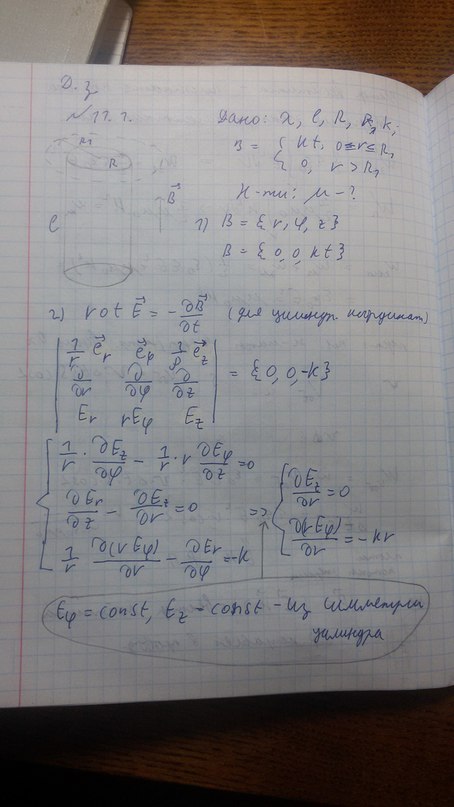 Д.з.
№ 11.1.
Дано: λ, l, R, R₁, k;
B = { kt, 0≤r≤R₁
0, r > R₁
Н-ти: M - ?
R1
R
B⃗
l
1) B = {r, φ, z}
B = {0, 0, kt}
2) rot E⃗ = -∂B⃗/∂t (для цилиндр. координат)
| 1/r e⃗r e⃗φ 1/ρ e⃗z |
| ∂/∂r ∂/∂φ ∂/∂z | = {0, 0, -k}
| Er rEφ Ez |
{ 1/r · ∂Ez/∂φ - 1/r · r ∂Eφ/∂z = 0
∂Er/∂z - ∂Ez/∂r = 0 => { ∂Ez/∂r = 0
1/r ∂(rEφ)/∂r - ∂Er/∂φ = -k ∂(rEφ)/∂r = -kr
Eφ = const, Ez - const - из симметрии
цилиндра